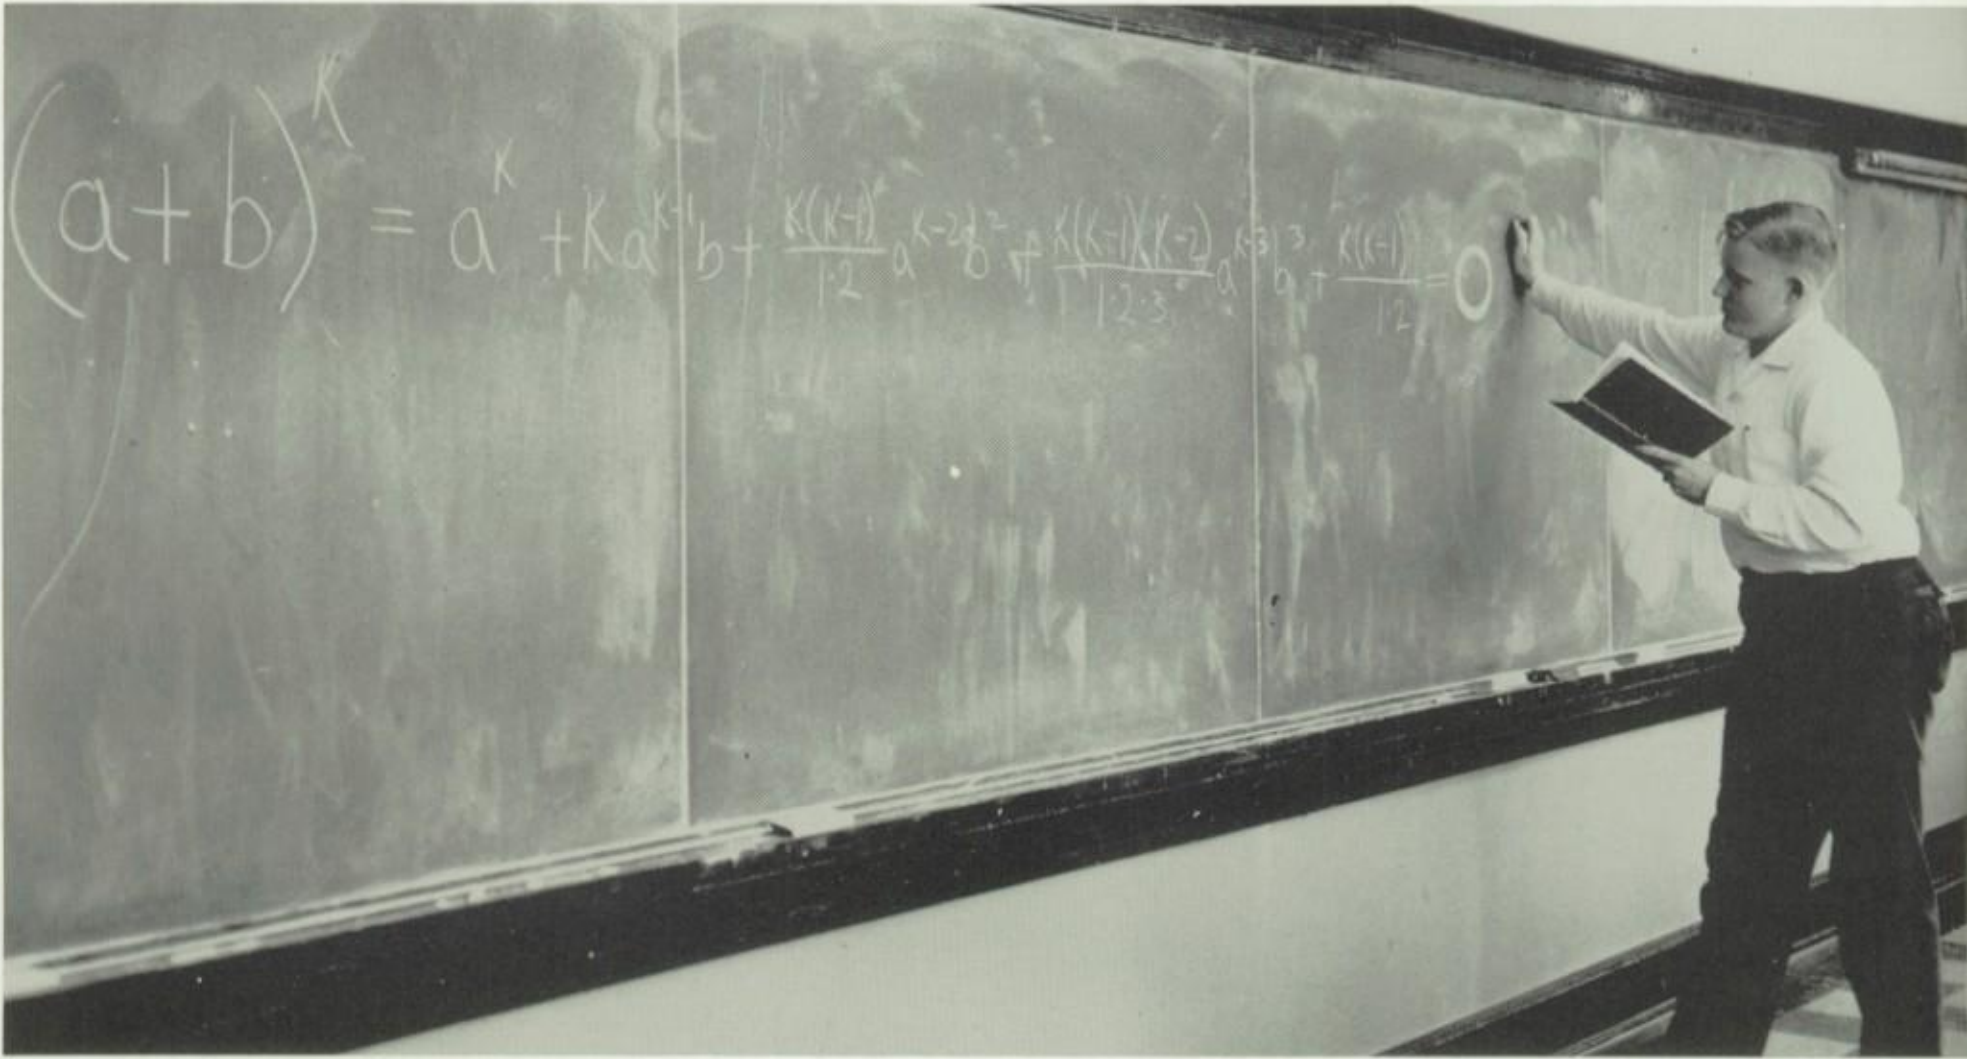 (a+b)^K = a^K + Ka^{K-1}b + \frac{K(K-1)}{1·2}a^{K-2}b^2 + \frac{K(K-1)(K-2)}{1·2·3}a^{K-3}b^3 + \frac{K(K-1)}{1·2} = 0